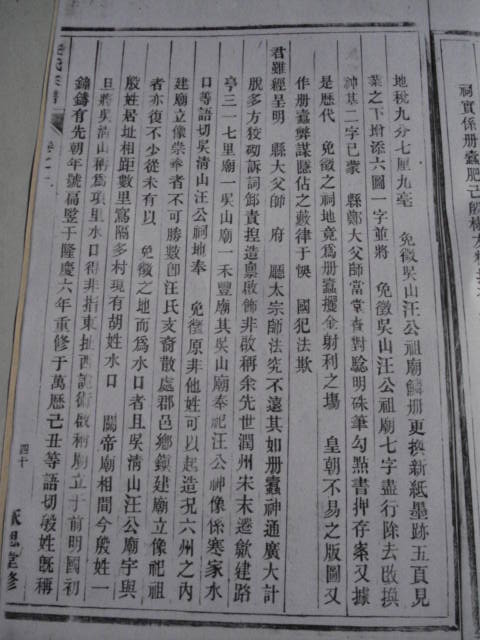 祠實係册蠹肥己
地稅九分七厘九毫　免徵吳山汪公祖廟鱗册更換新紙墨跡五頁見
業之下增添六圖一字並將　免徵吳山汪公祖廟七字盡行除去改換
神基二字已蒙　縣鄭大父師當堂查對驗明硃筆勾點書押存案又據
是歷代　免徵之祠地竟爲册蠹攫金射利之塲　皇朝不易之版圖又
作册蠹弊謀隱佔之藪律于悞　國犯法欺
君雖經呈明　縣大父師　府　廳太宗師法究不遠其如册蠹神通廣大計
脫多方狡砌訴詞卸責捏造禀啟飾非啟稱余先世潤州朱末遷歙建路
亭三一七里廟一吳山廟一禾豐廟其吳山廟奉祀汪公神像係寒家水
口等語切吳清山汪公祠地奉　免徵原非他姓可以起造况六州之內
建廟立像崇奉者不可勝數卽汪氏支裔散處郡邑鄉鎭建廟立像祀祖
者亦復不少從未有以　免徵之地而爲水口者且吳清山汪公廟字與
殷姓居址相距數里窵隔多村現有胡姓水口　關帝廟相間今殷姓一
旦將吳清山稱爲項里水口得非指東扯西詭術啟稱廟立于前明國初
鐘鑄有先朝年號匾竪于隆慶六年重修于萬厯己丑等語切殷姓旣稱
氏宗譜
卷之
四十
永思堂修